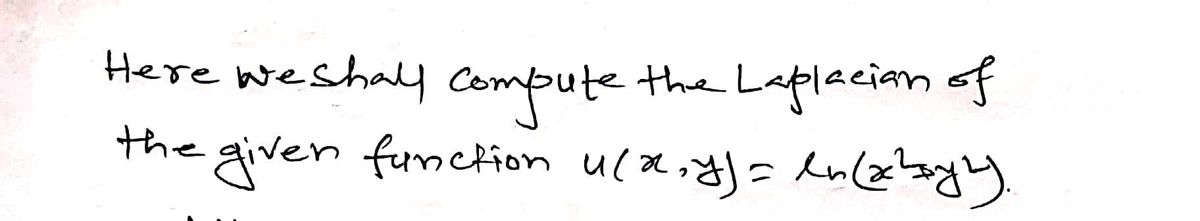 Here we shall compute the Laplacian of
the given function u(x,y) = ln(x²+y²).